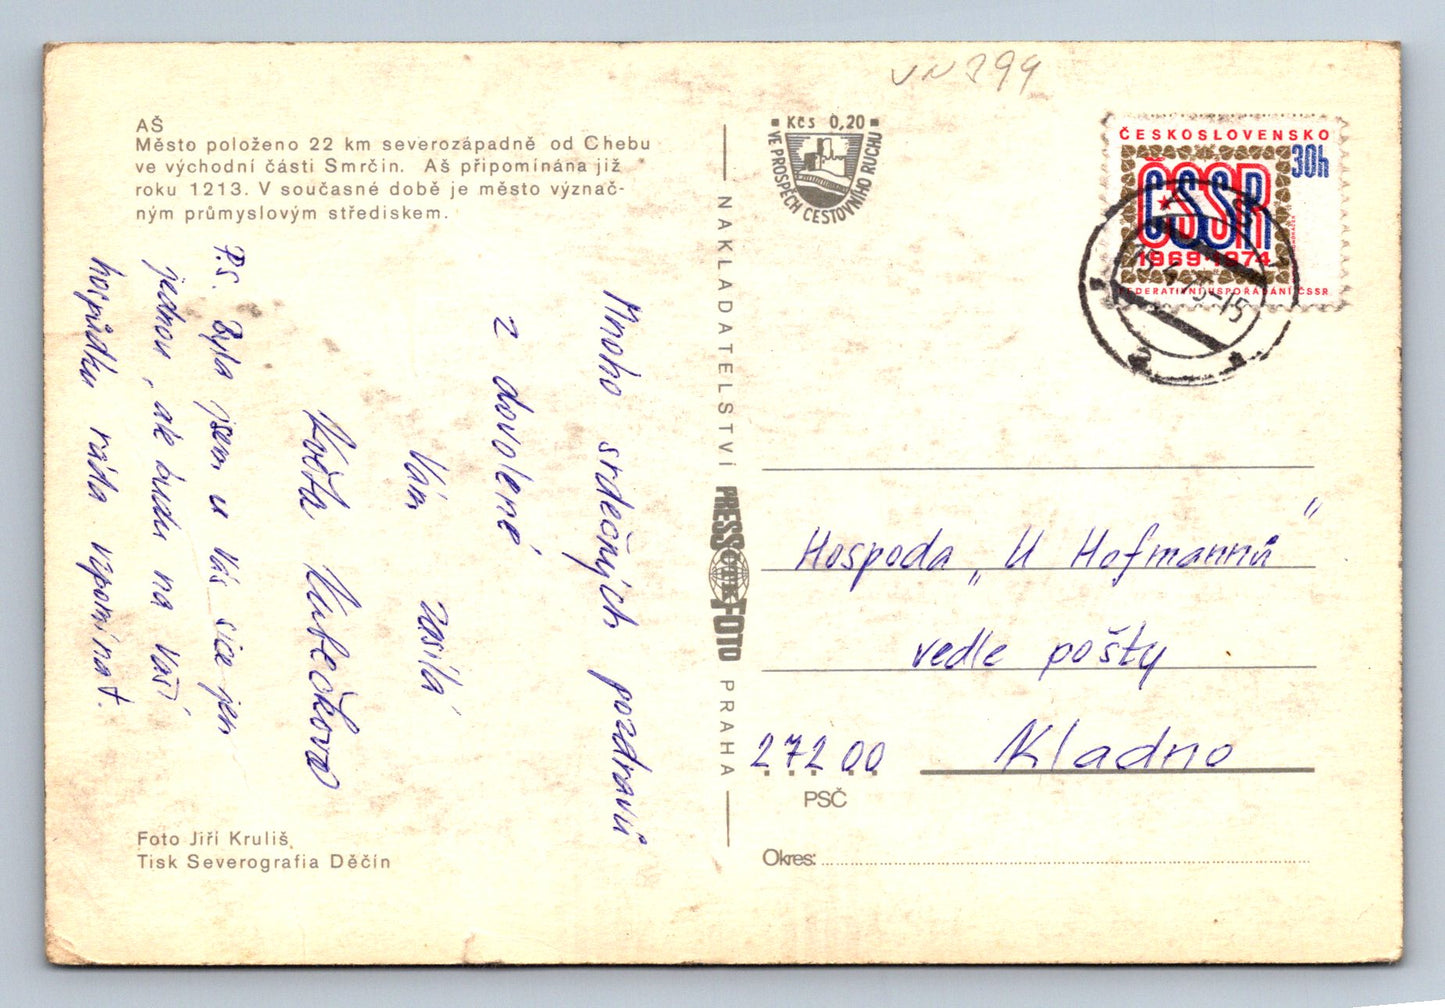 VN 399
AŠ
Město položeno 22 km severozápadně od Chebu
ve východní části Smrčin. Aš připomínána již
roku 1213. V současné době je město význač-
ným průmyslovým střediskem.
Mnoho srdečných pozdravů
z dovolené
Vám zasílá
Květa
P.S. Byla jsem u Vás sice jen
jednou, ale budu na Vaší
hospůdku ráda vzpomínat.
Foto Jiří Kruliš,
Tisk Severografia Děčín
NAKLADATELSTVÍ
PRESSFOTO
PRAHA
Kčs 0,20
VE PROSPĚCH CESTOVNÍHO RUCHU
ČESKOSLOVENSKO
30h
ČSSR
1969-1974
FEDERATIVNÍ USPOŘÁDÁNÍ ČSSR
Hospoda „U Hofmannů"
vedle pošty
272 00 Kladno
PSČ
Okres: